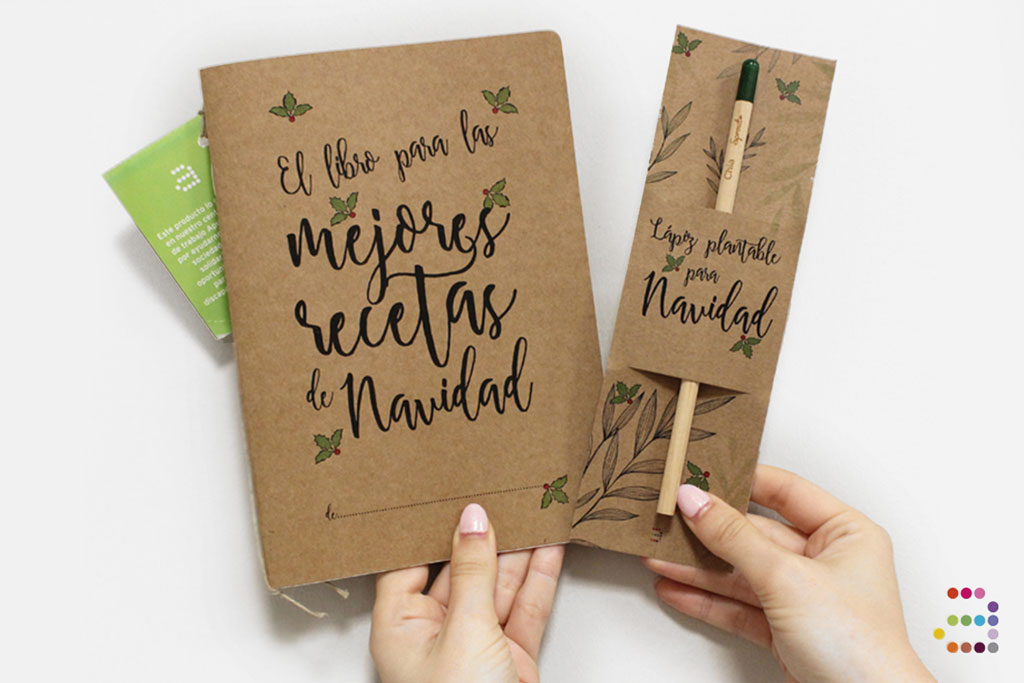 El libro para las
mejores
recetas
de Navidad
de:
Este producto lo
en nuestro cen
de trabajo
por ayudarn
sociedad
solida
oportun
para
disca
Chia
Lápiz plantable
para
Navidad